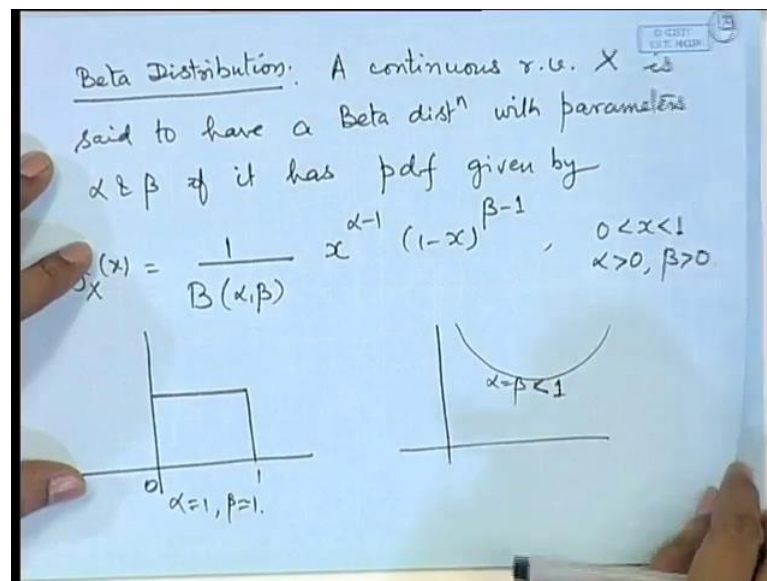 Beta Distribution. A continuous r.v. X is
said to have a Beta distⁿ with parameters
α & β if it has pdf given by
f_X(x) = 1 / B(α,β) x^(α-1) (1-x)^(β-1) , 0<x<1
α>0, β>0
0 1
α=1, β=1.
α=β<1